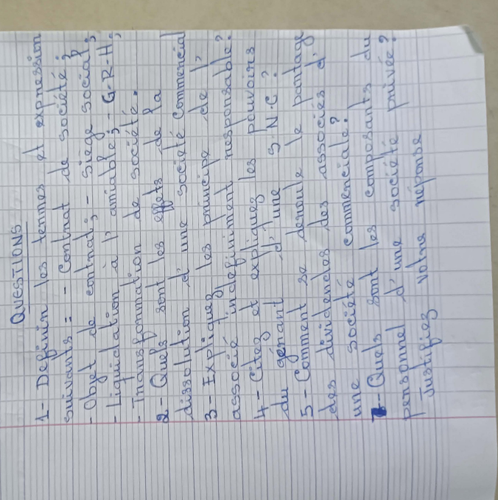 QUESTIONS
1- Définir les termes et expression
suivants = - Contrat de société;
- Objet de contrat; - Siège social;
- Liquidation à l'amiable; - G-R-H;
- Transformation de société.
2- Quels sont les effets de la
dissolution d'une société commercial
3- Expliquez les principe de l'
associé indéfiniment responsable?
4- Citez et expliquez les pouvoirs
du gérant d'une S N C ?
5- Comment se déroule le partage
des dividendes des associés d'
une société commerciale?
- Quels sont les composants du
personnel d'une société privée?
Justifiez votre réponse